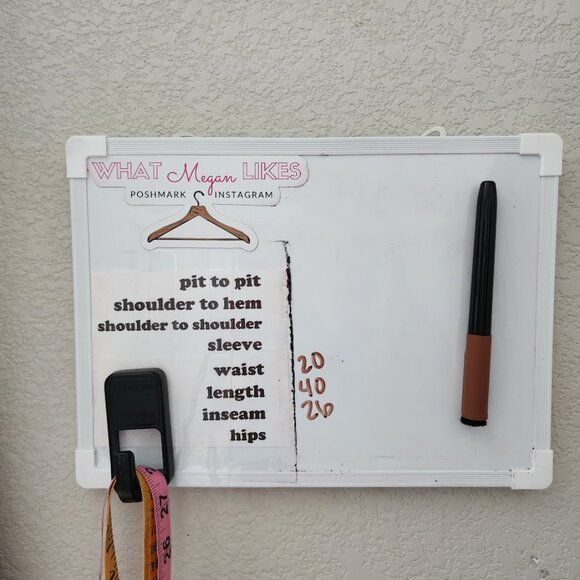 WHAT Megan LIKES
POSHMARK INSTAGRAM
pit to pit
shoulder to hem
shoulder to shoulder
sleeve
waist 20
length 40
inseam 26
hips
27
26